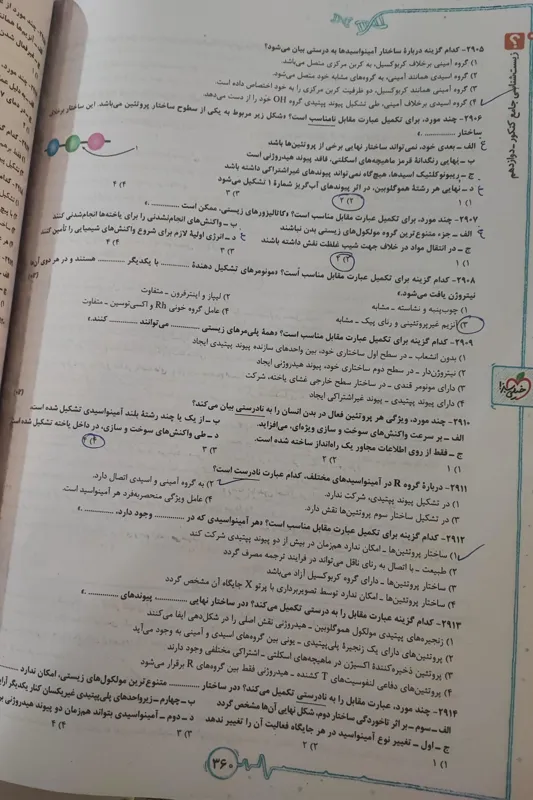 زیست‌شناسی جامع کنکور ـ دوازدهم
۲۹۰۵- کدام گزینه دربارهٔ ساختار آمینواسیدها به درستی بیان می‌شود؟
۱) گروه آمینی برخلاف کربوکسیل، به کربن مرکزی متصل می‌باشد.
۲) گروه اسیدی همانند آمینی، به گروه‌های مشابه خود متصل می‌شود.
۳) گروه آمینی همانند کربوکسیل، دو ظرفیت کربن مرکزی را به خود اختصاص داده است.
۴) گروه اسیدی برخلاف آمینی، طی تشکیل پیوند پپتیدی گروه OH خود را از دست می‌دهد.
۲۹۰۶- چند مورد، برای تکمیل عبارت مقابل نامناسب است؟ «شکل زیر مربوط به یکی از سطوح ساختار پروتئین می‌باشد. این ساختار برخلاف
ساختار ............ .»
الف ـ بعدی خود، نمی‌تواند ساختار نهایی برخی از پروتئین‌ها باشد
ب ـ نهایی رنگدانهٔ قرمز ماهیچه‌های اسکلتی، فاقد پیوند هیدروژنی است
ج ـ ریبونوکلئیک اسیدها، هیچ‌گاه نمی‌تواند پیوندهای غیراشتراکی داشته باشد
د ـ نهایی هر رشتهٔ هموگلوبین، در اثر پیوندهای آب‌گریز شمارهٔ ۱ تشکیل می‌شود
۱) ۱ ۲) ۲ ۳) ۳ ۴) ۴
۲۹۰۷- چند مورد، برای تکمیل عبارت مقابل مناسب است؟ «کاتالیزورهای زیستی، ممکن است ............ .»
الف ـ جزء متنوع‌ترین گروه مولکول‌های زیستی بدن نباشند ب ـ واکنش‌های انجام‌نشدنی را برای یاخته‌ها انجام‌شدنی کنند
ج ـ در انتقال مواد در خلاف جهت شیب غلظت نقش داشته باشند د ـ انرژی اولیهٔ لازم برای شروع واکنش‌های شیمیایی را تأمین کنند
۱) ۱ ۲) ۲ ۳) ۳ ۴) ۴
۲۹۰۸- کدام گزینه برای تکمیل عبارت مقابل مناسب است؟ «مونومرهای تشکیل دهندهٔ ............ با یکدیگر ............ هستند و در هر دوی آن‌ها
نیتروژن یافت می‌شود.»
۱) چوب‌پنبه و نشاسته ـ مشابه ۲) لیپاز و اینترفرون ـ متفاوت
۳) آنزیم غیرپروتئینی و رنای پیک ـ مشابه ۴) عامل گروه خونی Rh و اکسی‌توسین ـ متفاوت
۲۹۰۹- کدام گزینه برای تکمیل عبارت مقابل مناسب است؟ «همهٔ پلی‌مرهای زیستی ............ می‌توانند ............ کنند.»
۱) بدون انشعاب ـ در سطح اول ساختاری خود، بین واحدهای سازنده پیوند پپتیدی ایجاد
۲) نیتروژن‌دار ـ در سطح دوم ساختاری خود، پیوند هیدروژنی ایجاد
۳) دارای مونومر قندی ـ در ساختار سطح خارجی غشای یاخته، شرکت
۴) دارای پیوند پپتیدی ـ پیوند غیراشتراکی ایجاد
۲۹۱۰- چند مورد، ویژگی هر پروتئین فعال در بدن انسان را به نادرستی بیان می‌کند؟
الف ـ بر سرعت واکنش‌های سوخت و سازی ویژه‌ای، می‌افزاید. ب ـ از یک یا چند رشتهٔ بلند آمینواسیدی تشکیل شده است.
ج ـ فقط از روی اطلاعات مجاور یک راه‌انداز ساخته شده است. د ـ طی واکنش‌های سوخت و سازی، در داخل یاخته تشکیل شده
۱) ۱ ۲) ۲ ۳) ۳ ۴) ۴
۲۹۱۱- دربارهٔ گروه R در آمینواسیدهای مختلف، کدام عبارت نادرست است؟
۱) در تشکیل پیوند پپتیدی، شرکت ندارد. ۲) به گروه آمینی و اسیدی اتصال دارد.
۳) در تشکیل ساختار سوم پروتئین‌ها نقش دارد. ۴) عامل ویژگی منحصربه‌فرد هر آمینواسید است.
۲۹۱۲- کدام گزینه برای تکمیل عبارت مقابل مناسب است؟ «هر آمینواسیدی که در ............ وجود دارد، ............ .»
۱) ساختار پروتئین‌ها ـ امکان ندارد همزمان در بیش از دو پیوند پپتیدی شرکت کند
۲) طبیعت ـ با اتصال به رنای ناقل می‌تواند در فرایند ترجمه مصرف گردد
۳) ساختار پروتئین‌ها ـ دارای گروه کربوکسیل آزاد می‌باشد
۴) ساختار پروتئین‌ها ـ امکان ندارد توسط تصویربرداری با پرتو X جایگاه آن مشخص گردد
۲۹۱۳- کدام گزینه عبارت مقابل را به درستی تکمیل می‌کند؟ «در ساختار نهایی ............، پیوندهای ............ .»
۱) زنجیره‌های پپتیدی مولکول هموگلوبین ـ هیدروژنی نقش اصلی را در شکل‌دهی ایفا می‌کنند
۲) پروتئین‌های دارای یک زنجیرهٔ پلی‌پپتیدی ـ یونی بین گروه‌های اسیدی و آمینی به وجود می‌آید
۳) پروتئین ذخیره‌کنندهٔ اکسیژن در ماهیچه‌های اسکلتی ـ اشتراکی مختلفی وجود دارند
۴) پروتئین‌های دفاعی لنفوسیت‌های T کشنده ـ هیدروژنی فقط بین گروه‌های R برقرار می‌شود
۲۹۱۴- چند مورد، عبارت مقابل را به نادرستی تکمیل می‌کند؟ «در ساختار ............ متنوع‌ترین مولکول‌های زیستی، امکان ندارد
الف ـ سوم ـ بر اثر تاخوردگی ساختار دوم، شکل نهایی آن‌ها مشخص گردد ب ـ چهارم ـ زیرواحدهای پلی‌پپتیدی غیریکسان کنار یکدیگر
ج ـ اول ـ تغییر نوع آمینواسید در هر جایگاه فعالیت آن را تغییر ندهد د ـ دوم ـ آمینواسیدی بتواند هم‌زمان دو پیوند هیدروژنی
۱) ۱ ۲) ۲ ۳) ۳ ۴) ۴
۳۶۰